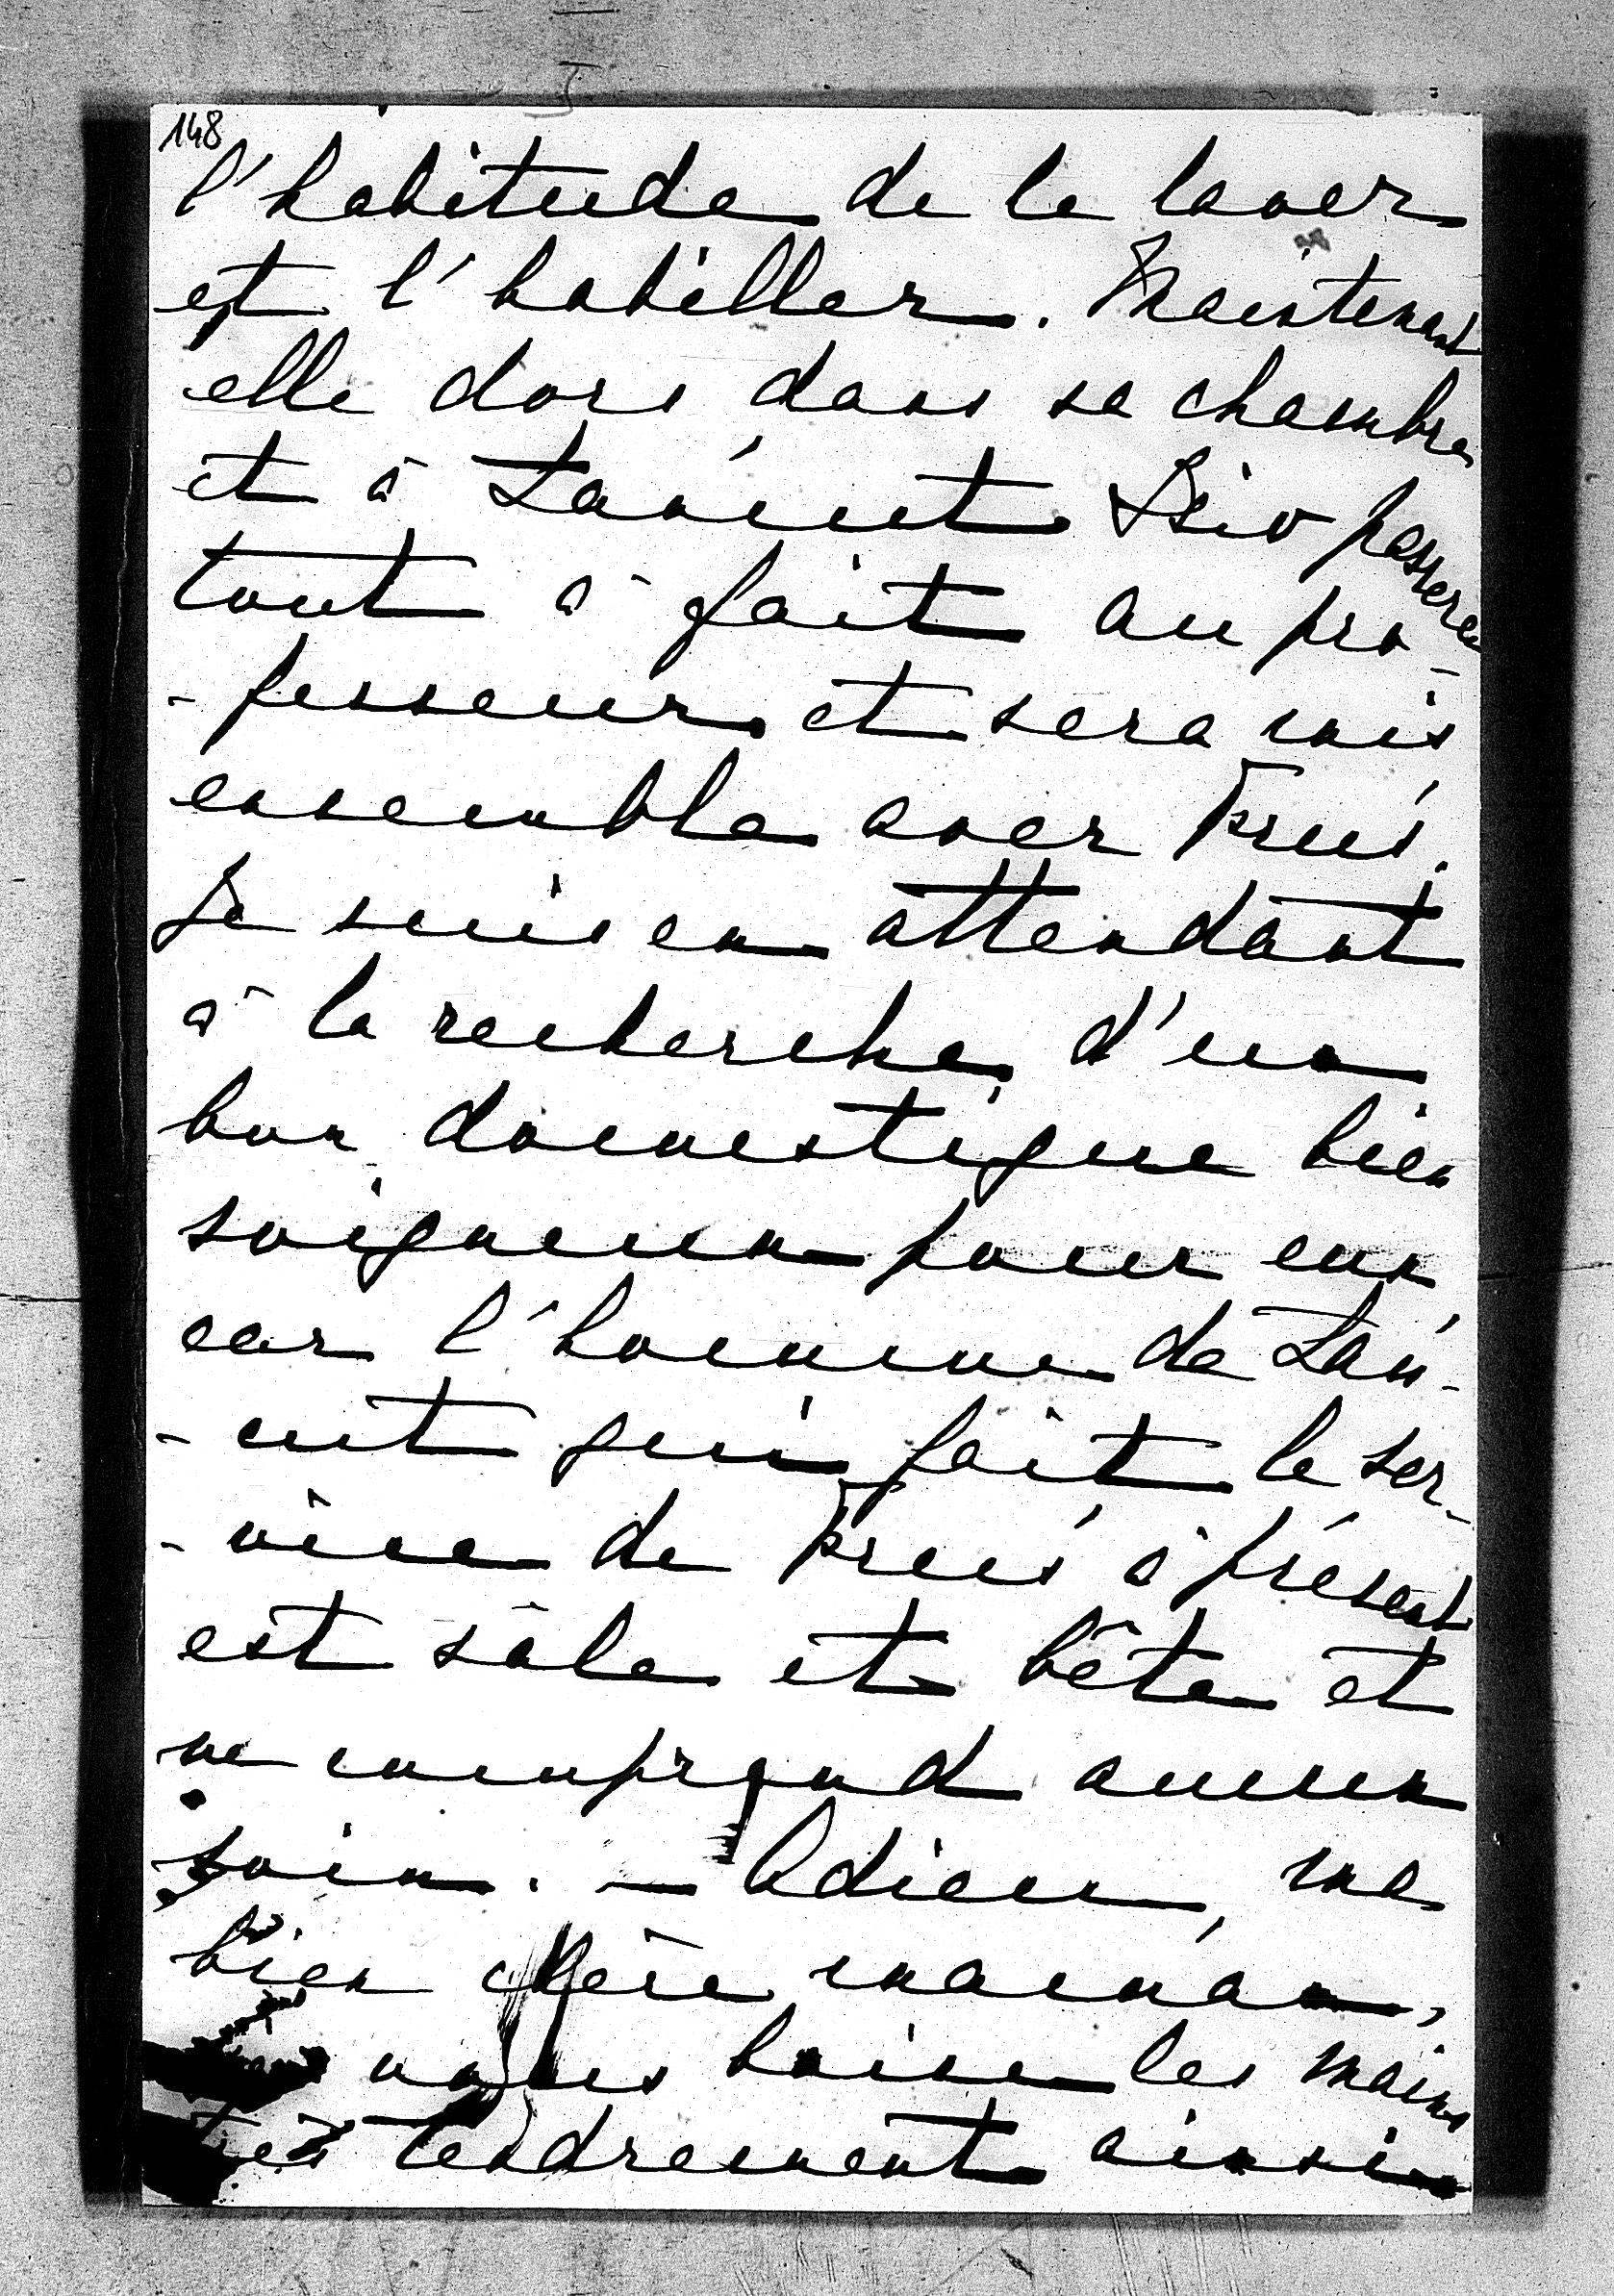 148
l'habitude de le laver
et l'habiller. Maintenant
elle dors dans sa chambre
et à Łańcut passera
tout à fait au pro-
-fesseur et sera mis
ensemble avec
Je suis en attendant
à la recherche d'un
bon domestique bien
soigneux pour eux
car l'homme de Łań-
-cut qui fait le ser-
-vice de à présent
est sâle et bête et
ne comprend aucun
soin. — Adieu, ma
bien chère maman,
vous baise les mains
très tendrement ainsi